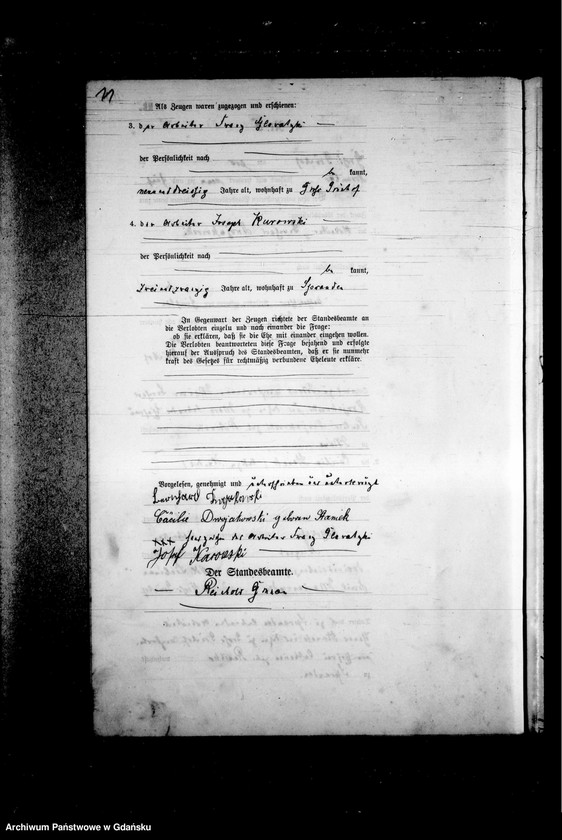 11
Als Zeugen waren zugezogen und erschienen:
3. der Arbeiter Franz Gloratzki
der Persönlichkeit nach
be kannt,
neununddreißig Jahre alt, wohnhaft zu Groß
4. der Arbeiter Joseph Kurowski
der Persönlichkeit nach
be kannt,
dreiundzwanzig Jahre alt, wohnhaft zu Sprauden
In Gegenwart der Zeugen richtete der Standesbeamte an
die Verlobten einzeln und nach einander die Frage:
ob sie erklären, daß sie die Ehe mit einander eingehen wollen.
Die Verlobten beantworteten diese Frage bejahend und erfolgte
hierauf der Ausspruch des Standesbeamten, daß er sie nunmehr
kraft des Gesetzes für rechtmäßig verbundene Eheleute erkläre.
Vorgelesen, genehmigt und
Cäcilie geboren
+++ Handzeichen des Arbeiter Franz Gloratzki
Josef Karowski
Der Standesbeamte.
Archiwum Państwowe w Gdańsku